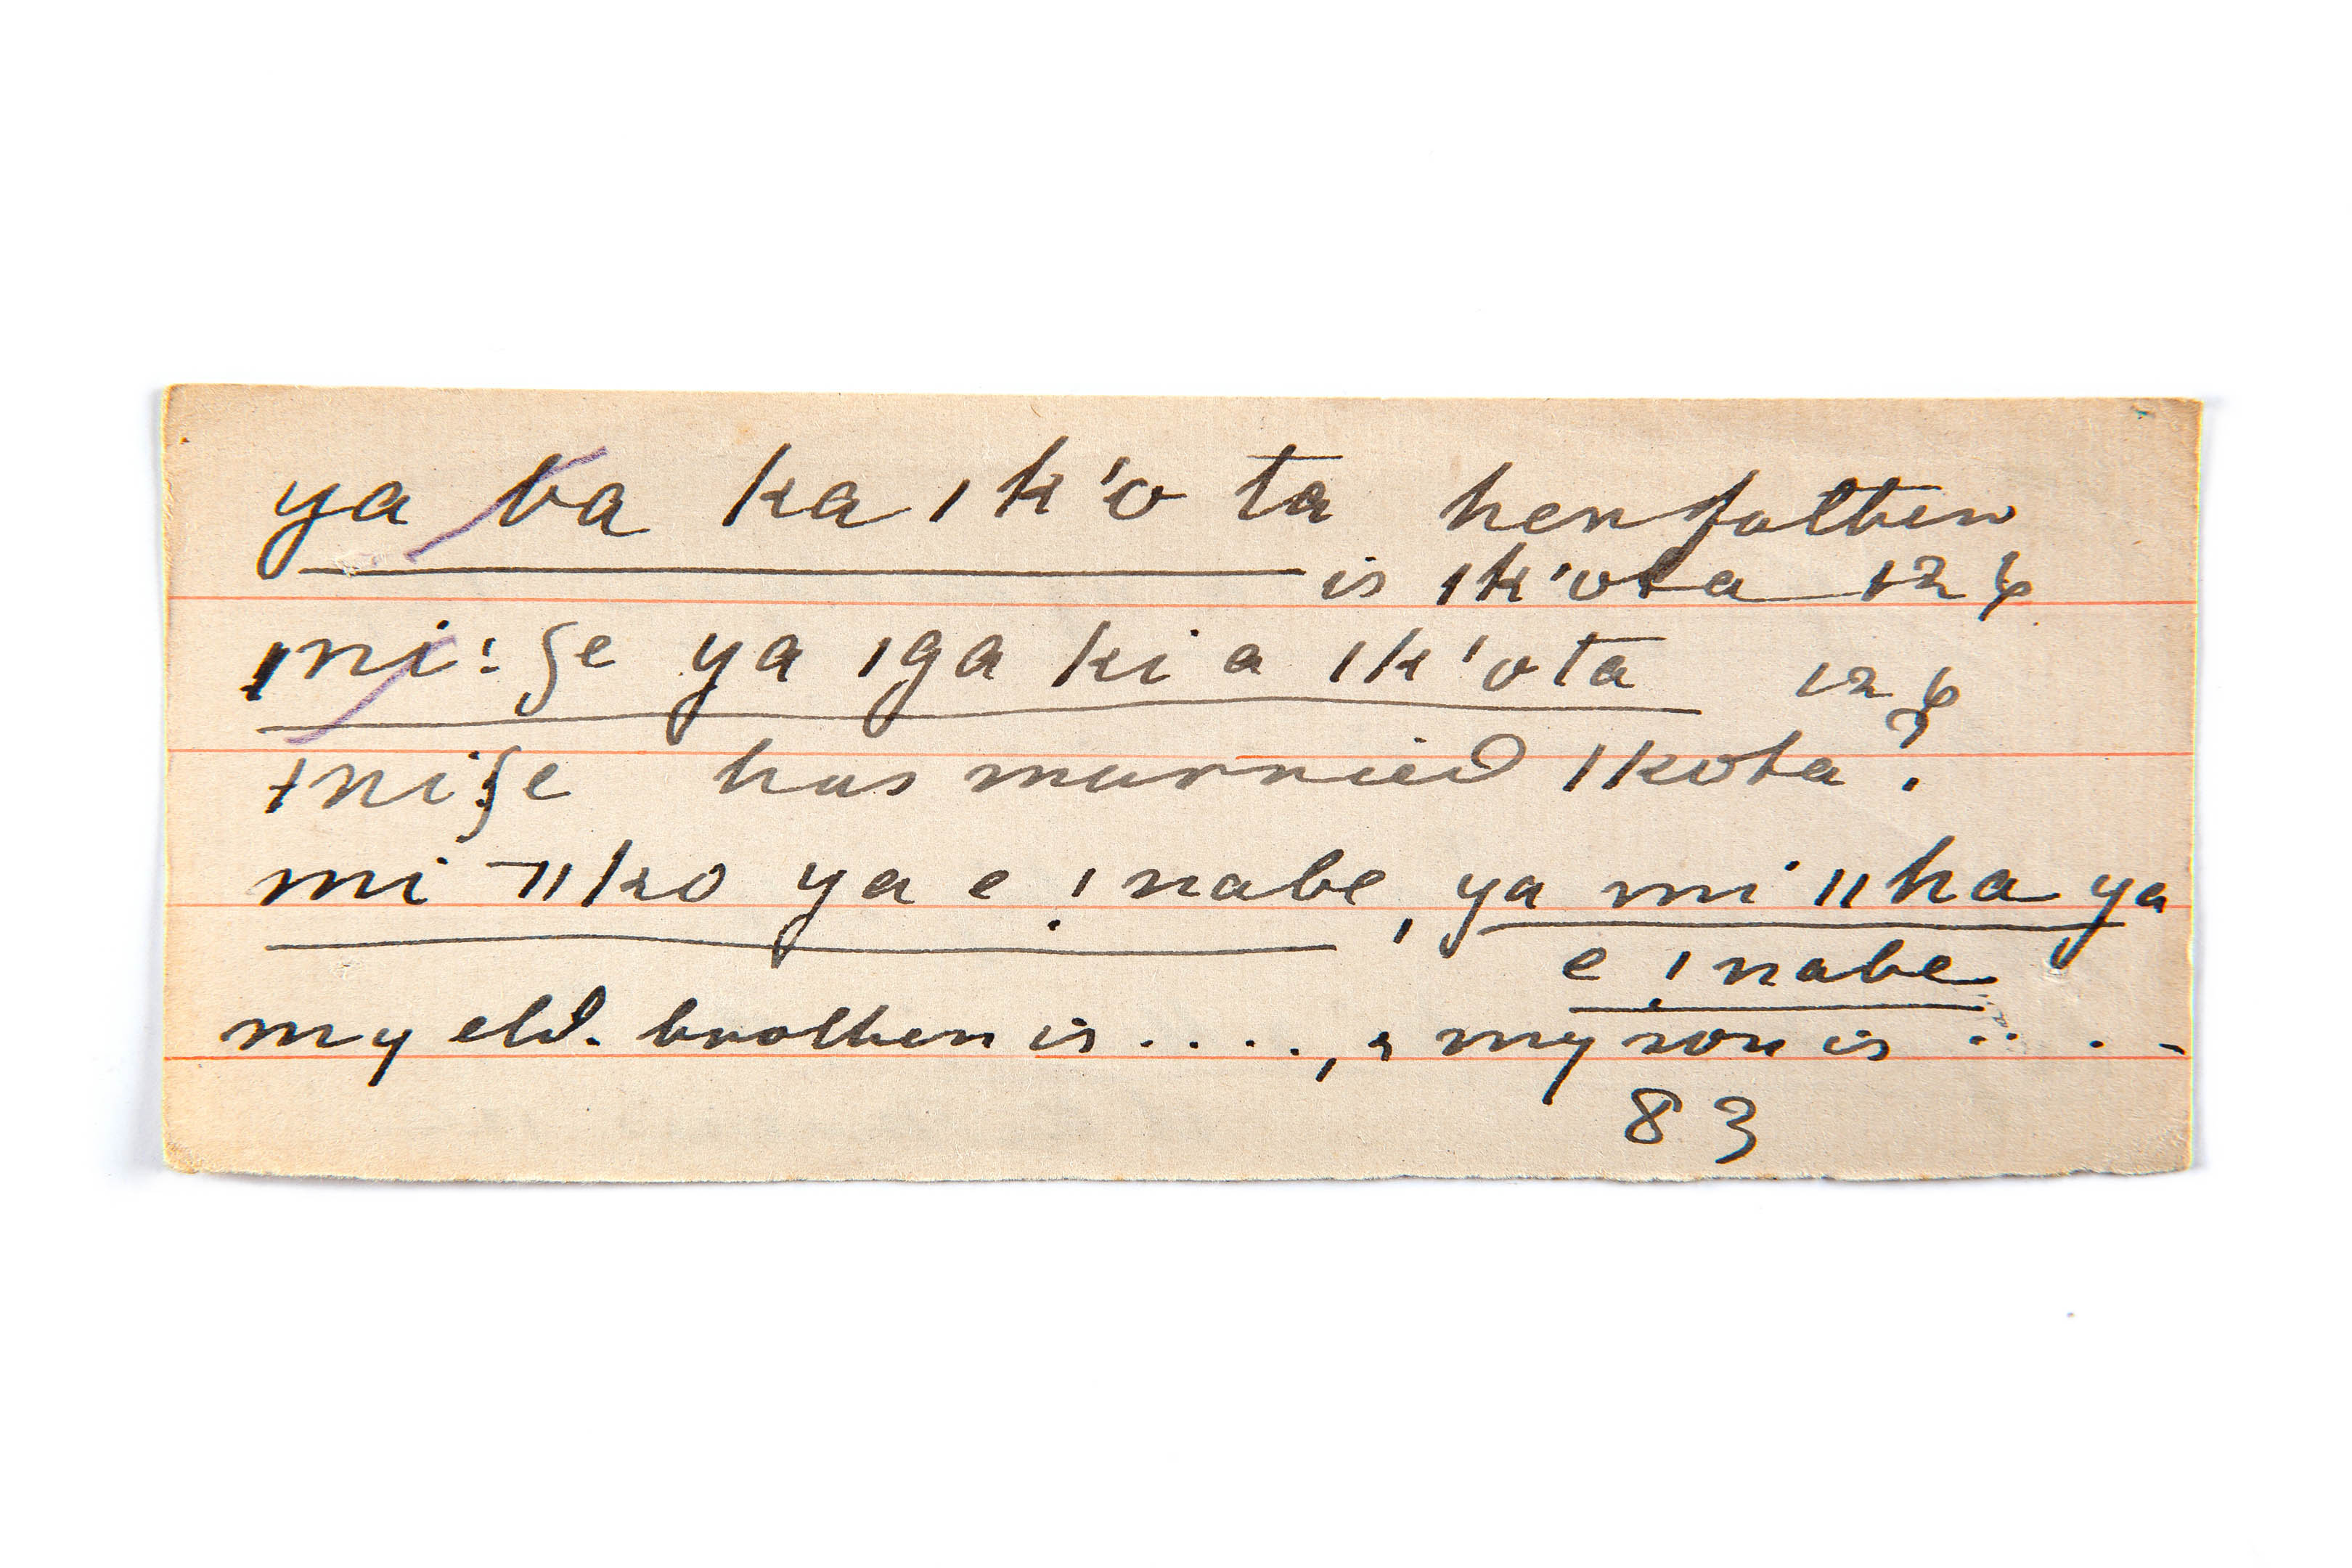 ya ba ka ǀk'o ta her father
is ǀk'ota 12
ǀni: ʃe ya ǀga ki a ǀk'ota 12
ǂniʃe has married ǀkota?
mi ¬ǁko ya e ! nabe, ya mi ǁha ya
e ! nabe
my eld. brother is . . . . , & my son is . . . -
83